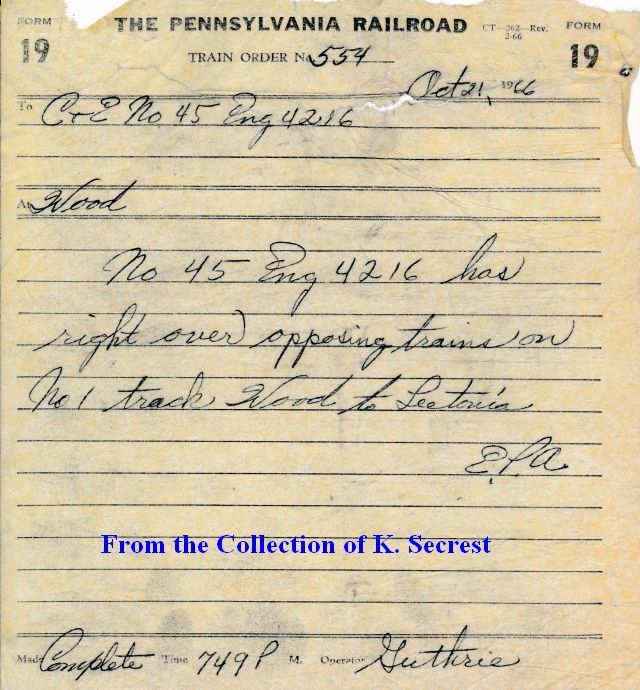 FORM 19
THE PENNSYLVANIA RAILROAD
CT—262—Rev. 2-66
FORM 19
TRAIN ORDER No 554
Oct 21, 1966
To C+E No 45 Eng 4216
At Wood
No 45 Eng 4216 has
right over opposing trains on
No 1 track Wood to Leetonia
E.P.A.
From the Collection of K. Secrest
Made Complete Time 749 P M. Operator Guthrie